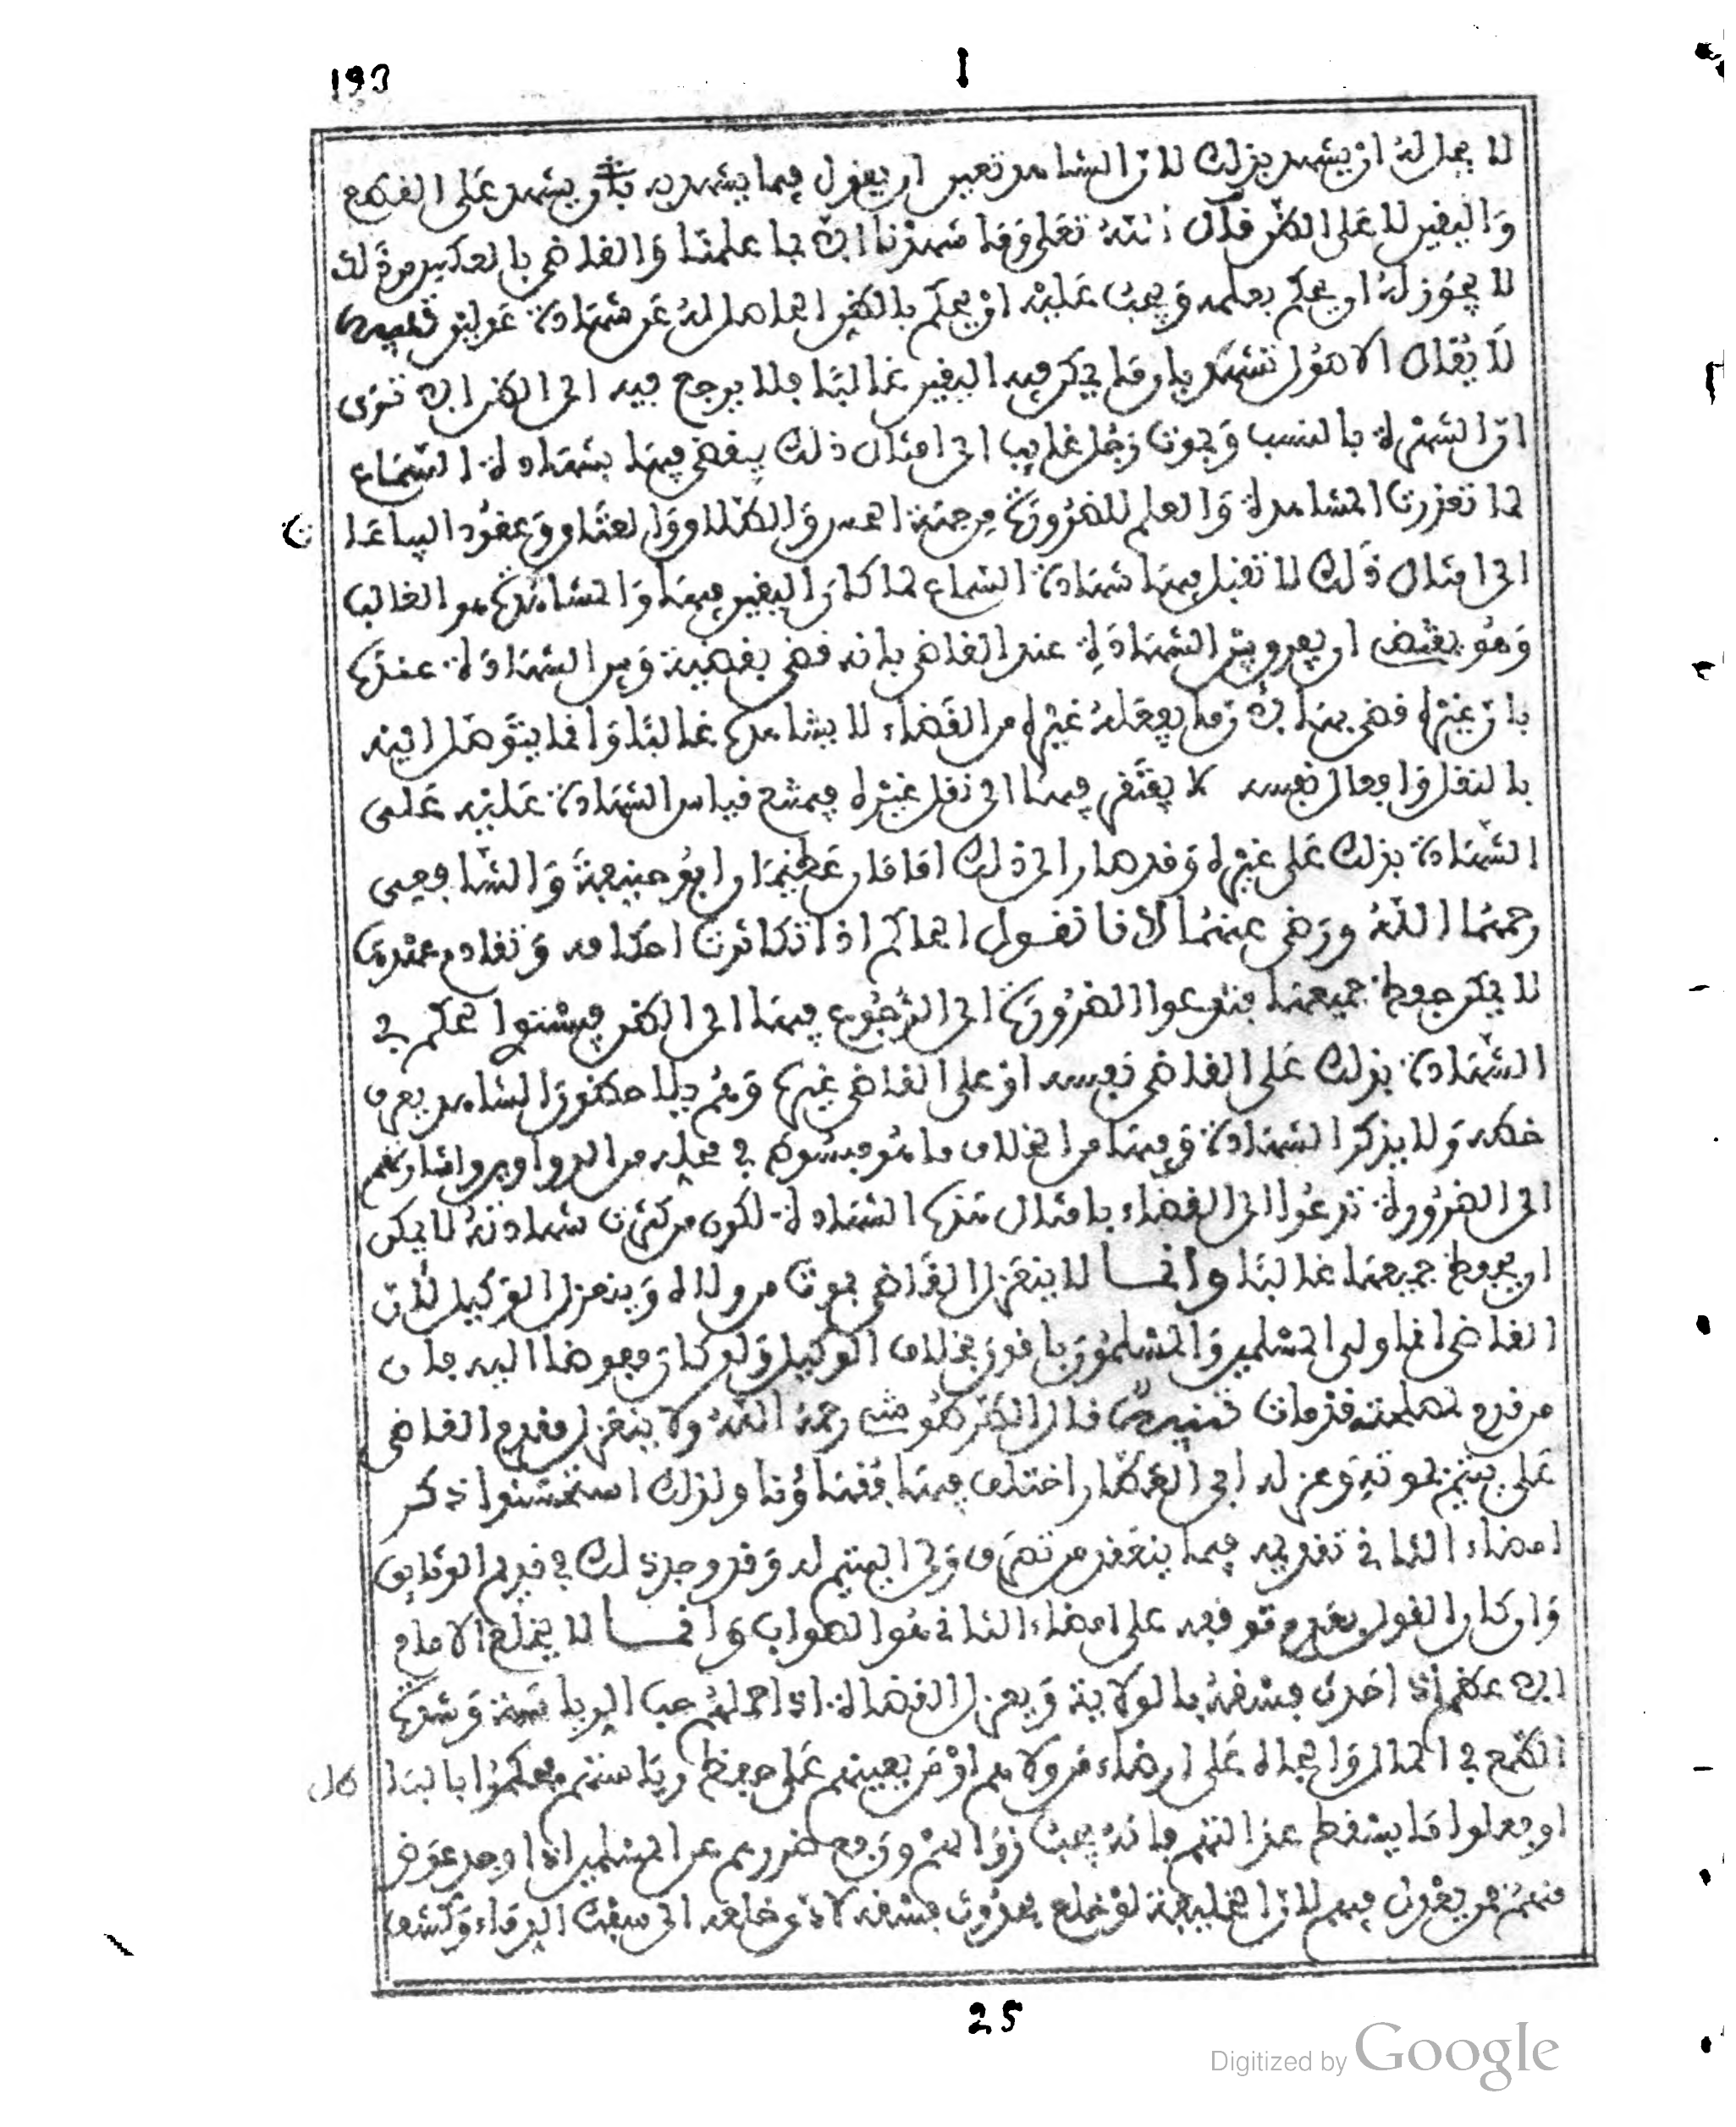 193
1
لا يحل له أن يشهد بذلك لأن الشاهد تعبد أن يقول فيما يشهد به بأن يشهد على القطع
واليقين لا على الظن قال الله تعلى وما شهدنا إلا بما علمنا والقاضي بالعكس من ذلك
لا يجوز له أن يحكم بعلمه ويجب عليه أن يحكم بالظن الحاصل له عن شهادة عدلين تنبيه
لا يقال الأصول تشهد بأن ما يمكن فيه اليقين غالبا فلا يرجع فيه إلى الظن ألا ترى
أن الشهرة بالنسب وبموت رجل غايب إلى أمثال ذلك يقضى فيها بشهادة السماع
لما تعذرت المشاهدة والعلم للضرورة من جهة الحس والطلاق والعتاق وعقود البياعا
ت
إلى أمثال ذلك لا تقبل فيها شهادة السماع لما كان اليقين فيها والمشاهدة هو الغالب
وهو يقتضي أن يفرق بين الشهادة عند القاضي بأنه قضى بقضية وبين الشهادة عنده
بأن غيره قضى بها لأن ما يفعله غيره من القضاء لا يشاهده غالبا وإنما يتوصل إليه
بالنقل وأفعال نفسه لا يفتقر فيها إلى نقل غيره فيمتنع قياس الشهادة عليه على
الشهادة بذلك على غيره وقد صار إلى ذلك إمامان عظيمان أبو حنيفة والشافعي
رحمهما الله ورضي عنهما لأنا نقول الحاكم إذا تكاثرت أحكامه وتقادم عهده
لا يمكن حفظ جميعها فتدعوا الضرورة إلى الرجوع فيها إلى الظن فيستوي الحكم في
الشهادة بذلك على القاضي نفسه أو على القاضي غيره وهم يلاحظون الشاهد يعرف
خطه ولا يذكر الشهادة وفيها من الخلاف ما هو مبسوط في محله من الدواوين وإشارتهم
إلى الضرورة تدعوا إلى القضاء بأمثال هذه الشهادة لكون من كثرت شهادته لا يمكن
أن يحفظ جميعها غالبا وإنما لا ينعزل القاضي بموت من ولاه وينعزل الوكيل لأن
القاضي إنما ولي المسلمين والمسلمون باقون بخلاف الوكيل ولو كان مفوضا إليه فإن
من قدم لمصلحته قد مات تنبيه قال الطرطوشي رحمه الله ولا ينعزل مقدم القاضي
على يتيم بموته وعزله ابن العطار اختلف فيها فقهاؤنا ولذلك استحسنوا ذكر
إمضاء الثاني تقديمه فيما ينعقد من تصرف ولي اليتيم له وقد وجد ذلك في قديم الوثايق
وإن كان القول بعدم توقفه على إمضاء الثاني هو الصواب وإنما لا يخلع الإمام
الأعظم إذا أحدث فسقه بالولاية ويعزل القضاة إذا حملهم حب الرياسة وشدة
الطمع في المال والجاه على إرضاء من ولاهم أو من يعينهم على حفظ رياستهم فحكموا بالبا
طل
أو فعلوا ما يسقط عدالتهم فإنه يجب زوالهم ودفع ضررهم عن المسلمين إذا وجد عوض
منهم من يعدل فيهم لأن الخليفة لو خلع بحدوث فسقه لأدى خلعه إلى سفك الدماء وكشف
25
Digitized by Google